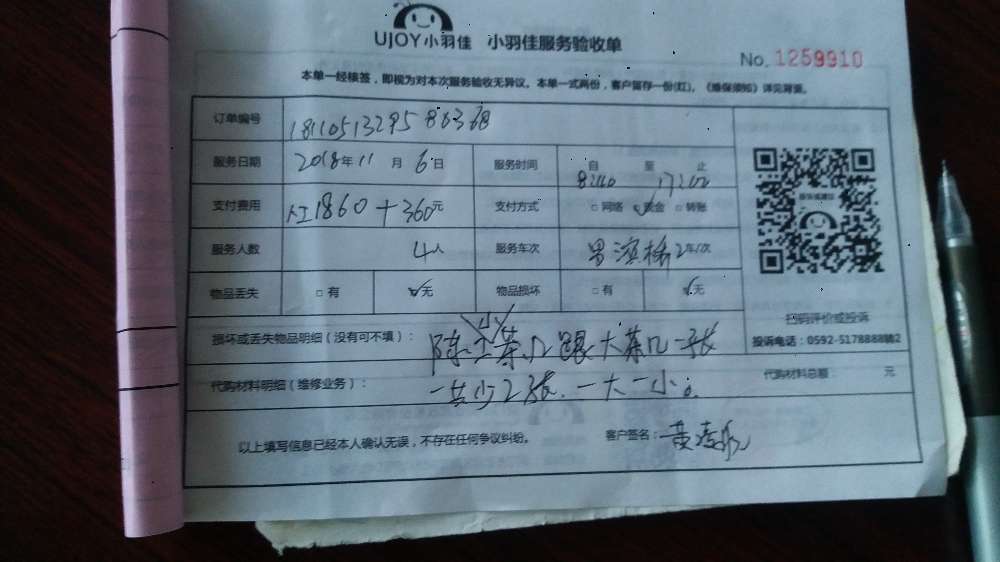 UJOY小羽佳 小羽佳服务验收单
No. 1259910
本单一经核签，即视为对本次服务验收无异议。本单一式两份，客户留存一份(红)。《维保须知》详见背面。
订单编号 1811051329586368
服务日期 2018年11月6日 服务时间 自 至 止
支付费用 人工1860+360元 支付方式 □网络 现金 □转账
服务人数 4人 服务车次 2车/次
物品丢失 □有 无 物品损坏 □有 无
扫码评价或投诉
投诉电话：0592-5178888转2
损坏或丢失物品明细（没有可不填）： 茶几跟大茶几一张
代购材料明细（维修业务）： 一共少2张.一大一小。 代购材料总额： 元
以上填写信息已经本人确认无误，不存在任何争议纠纷。 客户签名：黄